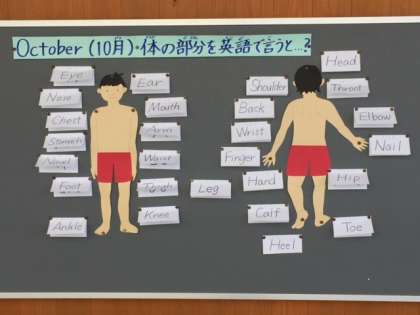 October (10月)・体の部分を英語で言うと…?
Eye
Nose
Chest
Stomach
Navel
Foot
Ankle
Ear
Mouth
Arm
Waist
Knee
Leg
Shoulder
Back
Wrist
Finger
Hand
Calf
Heel
Head
Throat
Elbow
Nail
Hip
Toe